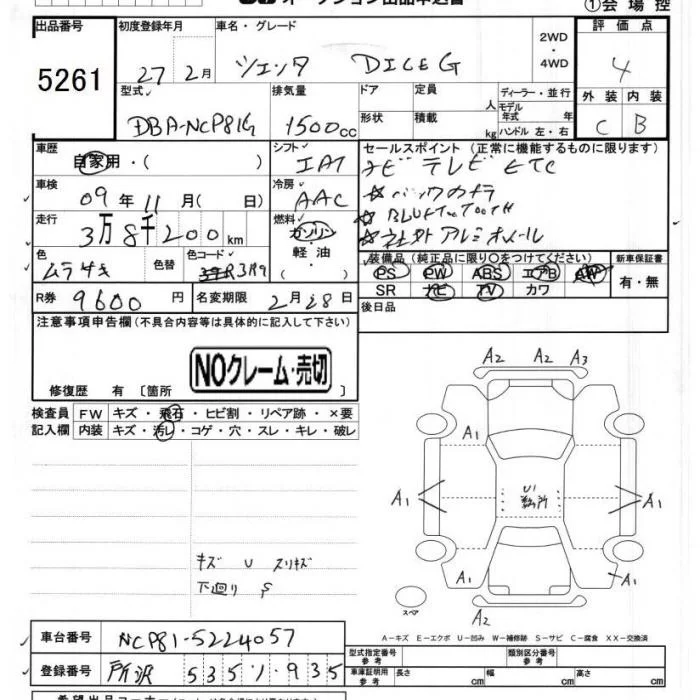 オークション出品申込書
①会場控
出品番号 初度登録年月 車名・グレード 評価点
5261 27 2月 シエンタ DICE G 2WD・4WD 4
型式 排気量 ドア 定員 人 ディーラー・並行 外装 内装
DBA-NCP81G 1500cc 形状 積載 kg モデル年式 年 ハンドル 左・右 C B
車歴 シフト セールスポイント (正常に機能するものに限ります)
自家用・( ) IAT ナビ テレビ ETC
車検 冷房 ☆バックカメラ
09年11月( 日) AAC ☆BLUETOOTH
走行 燃料 ☆社外アルミホイール
3万8千200km ガソリン・軽油・( )
色 色替 色コード 装備品 (純正品に限り○をつけてください) 新車保証書
ムラサキ 3R9 PS PW ABS エアB AW 有・無
SR ナビ TV カワ
R券 9600円 名変期限 2月28日 後日品
注意事項申告欄 (不具合内容等は具体的に記入して下さい)
NOクレーム・売切
修復歴 有 〔箇所 〕
検査員 FW キズ・飛石・ヒビ割・リペア跡・×要
記入欄 内装 キズ・汚レ・コゲ・穴・スレ・キレ・破レ
A2 A2 A3
A1
A1 A1
U1
A1 A1
A2
スペア
キズ U スリキズ
下廻り S
A-キズ E-エクボ U-凹み W-補修跡 S-サビ C-腐食 XX-交換済
車台番号 NCP81-5224057 型式指定番号 参考 類別区分番号 参考
登録番号 所沢 535 935 車庫証明用 参考 長さ cm 幅 cm 高さ cm